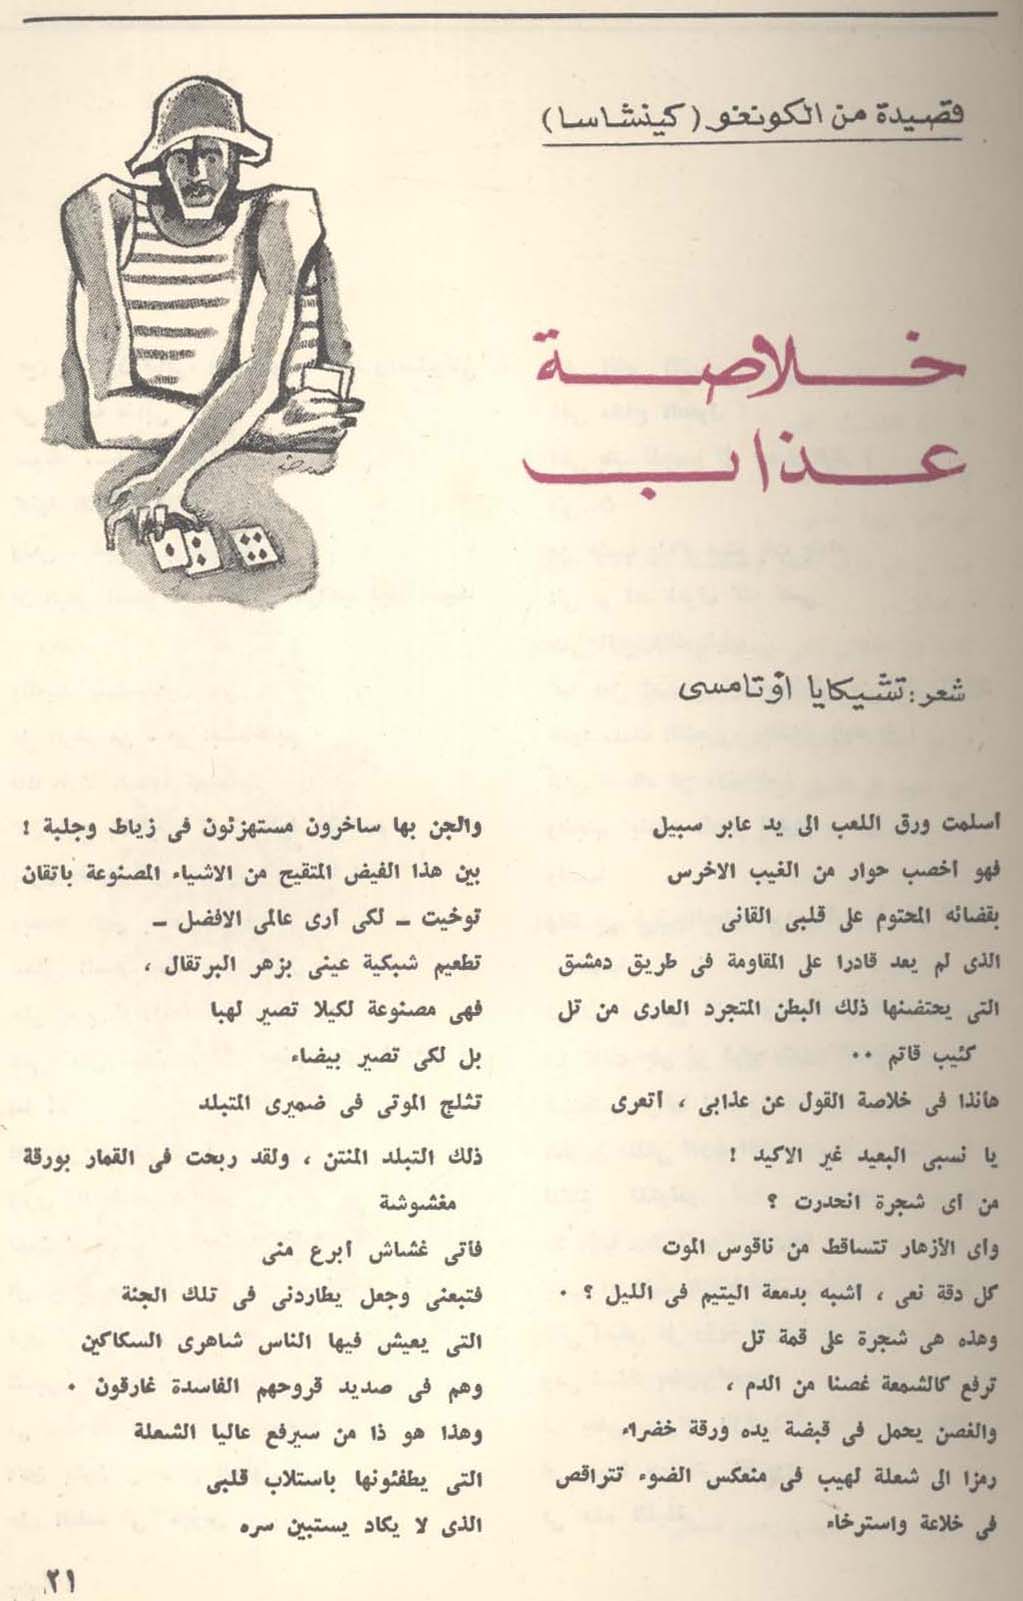 قصيدة من الكونغو (كينشاسا)
خلاصة
عذاب
شعر: تشيكايا أوتامسى
أسلمت ورق اللعب الى يد عابر سبيل
فهو أخصب حوار من الغيب الاخرس
بقضائه المحتوم على قلبى القانى
الذى لم يعد قادرا على المقاومة فى طريق دمشق
التى يحتضنها ذلك البطن المتجرد العارى من تل
كئيب قاتم ..
هأنذا فى خلاصة القول عن عذابى ، أتعرى
يا نسبى البعيد غير الاكيد !
من أى شجرة انحدرت ؟
وأى الأزهار تتساقط من ناقوس الموت
كل دقة نعى ، أشبه بدمعة اليتيم فى الليل ؟ .
وهذه هى شجرة على قمة تل
ترفع كالشمعة غصنا من الدم ،
والغصن يحمل فى قبضة يده ورقة خضراء
رمزا الى شعلة لهيب فى منعكس الضوء تتراقص
فى خلاعة واسترخاء
والجن بها ساخرون مستهزئون فى زياط وجلبة !
بين هذا الفيض المتقيح من الاشياء المصنوعة باتقان
توخيت - لكى أرى عالمى الافضل -
تطعيم شبكية عينى بزهر البرتقال ،
فهى مصنوعة لكيلا تصير لهبا
بل لكى تصير بيضاء
تثلج الموتى فى ضميرى المتبلد
ذلك التبلد المنتن ، ولقد ربحت فى القمار بورقة
مغشوشة
فأتى غشاش أبرع منى
فتبعنى وجعل يطاردنى فى تلك الجنة
التى يعيش فيها الناس شاهرى السكاكين
وهم فى صديد قروحهم الفاسدة غارقون .
وهذا هو ذا من سيرفع عاليا الشعلة
التى يطفئونها باستلاب قلبى
الذى لا يكاد يستبين سره
٢١